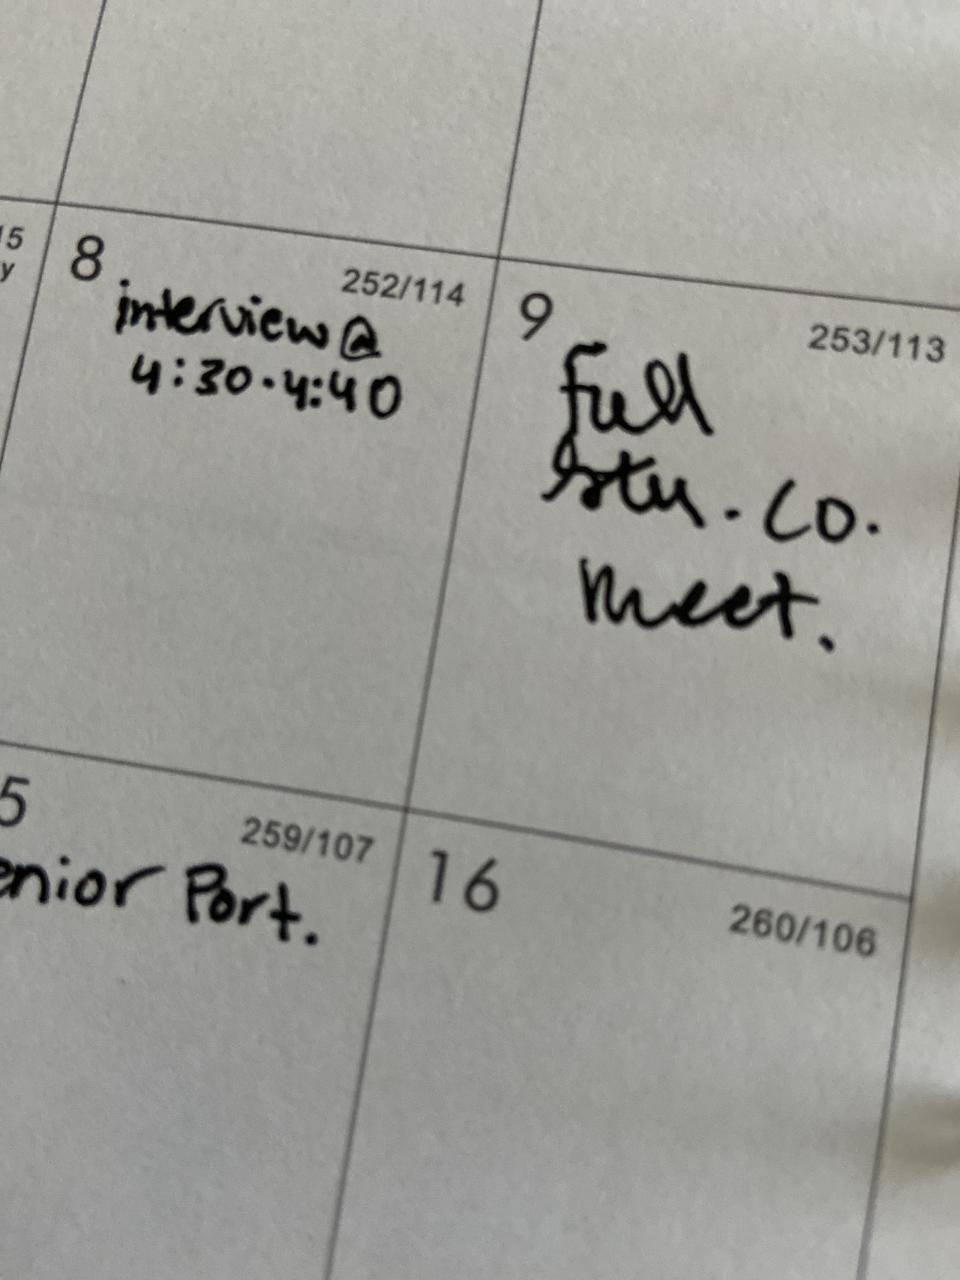 15
y
8
252/114
interview @
4:30-4:40
9
253/113
Full
Stu. Co.
Meet.
5
259/107
enior Port.
16
260/106